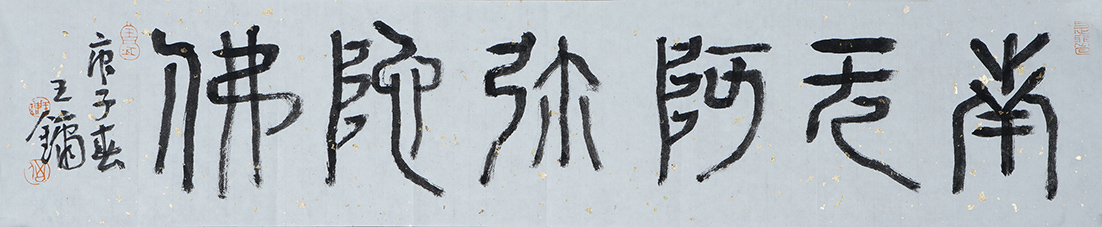 南无阿弥陀佛
庚子春
王镛